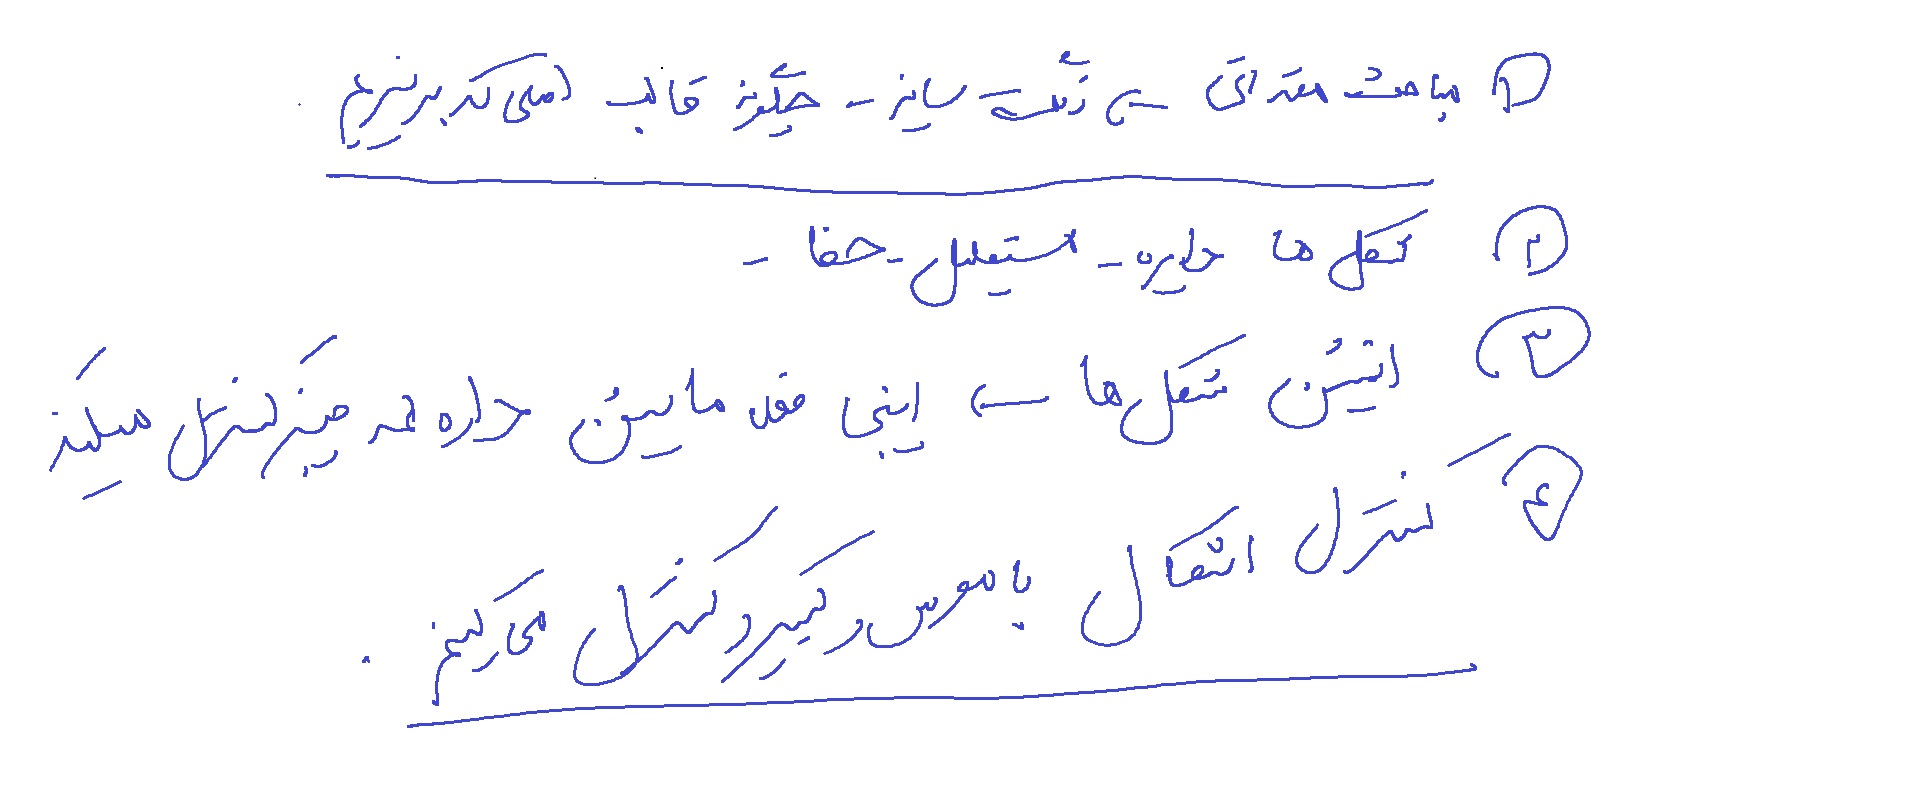 ① مباحث مقدماتی ← رنگ - سایز - چگونه قالب اصلی کد بنویسیم.
② شکل ها دایره - مستطیل - خط -
③ انیمیشن شکل ها ← اینجا فقط ماشین داره همه چیز کنترل میکند
④ کنترل اشکال با موس و کیبرد کنترل می کنیم.